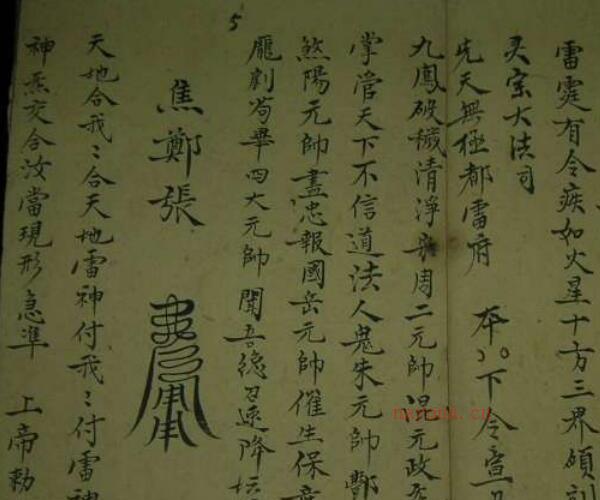 雷霆有令疾如火星十方三界頃刻
灵宝大法司
先天無極都雷府 本 下令宣
九鳳破穢清淨 周二元帥混元
掌管天下不信道法人鬼朱元帥酆
煞陽元帥盡忠報國岳元帥催生保
龐劉苟畢四大元帥聞吾 召速降坛
5
焦鄭張
天地合我〻合天地雷神付我〻付雷神
神炁交合汝當現形急準 上帝勅